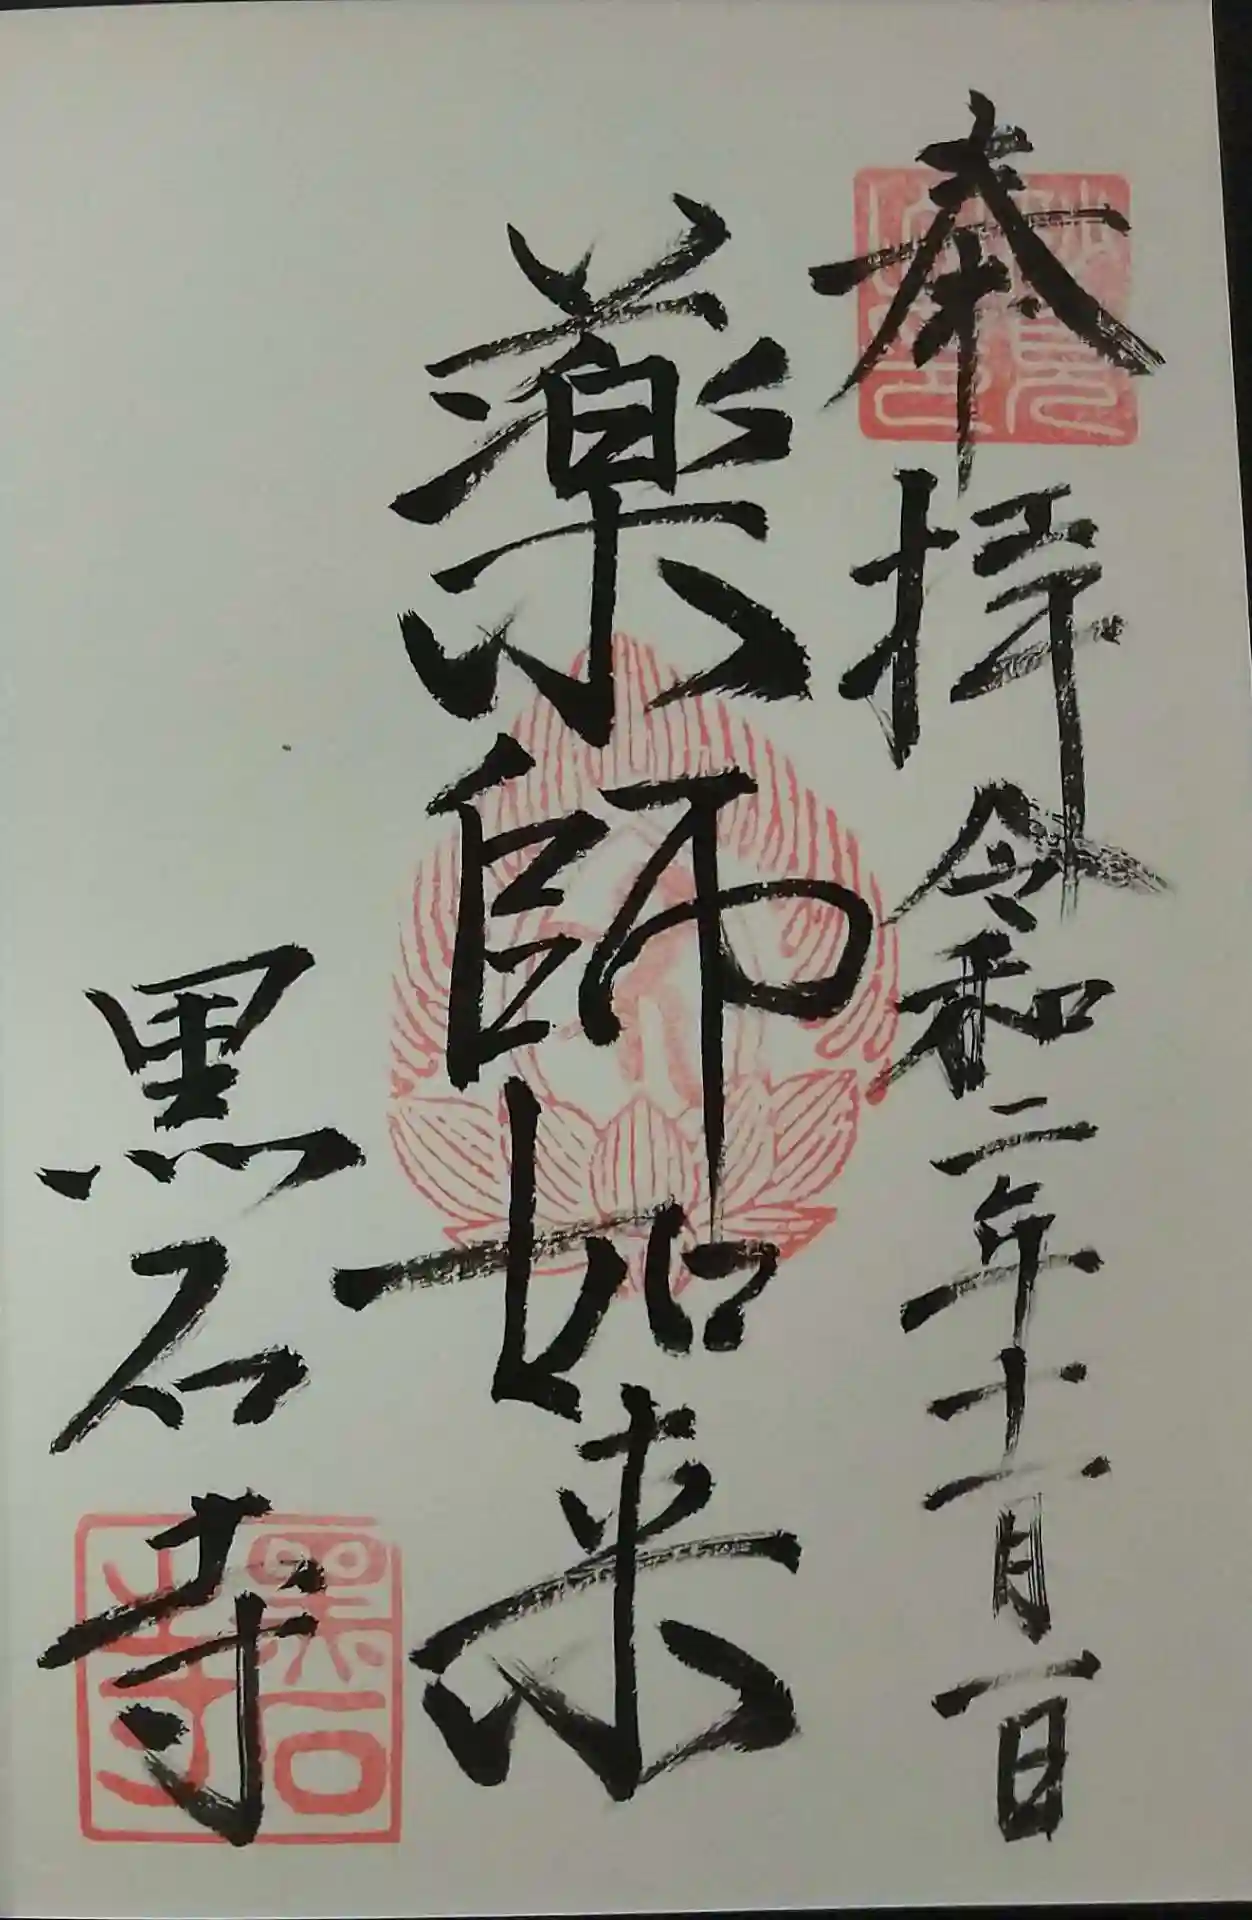 奉拝 令和二年十一月一日
薬師如来
黒石寺
黒石寺